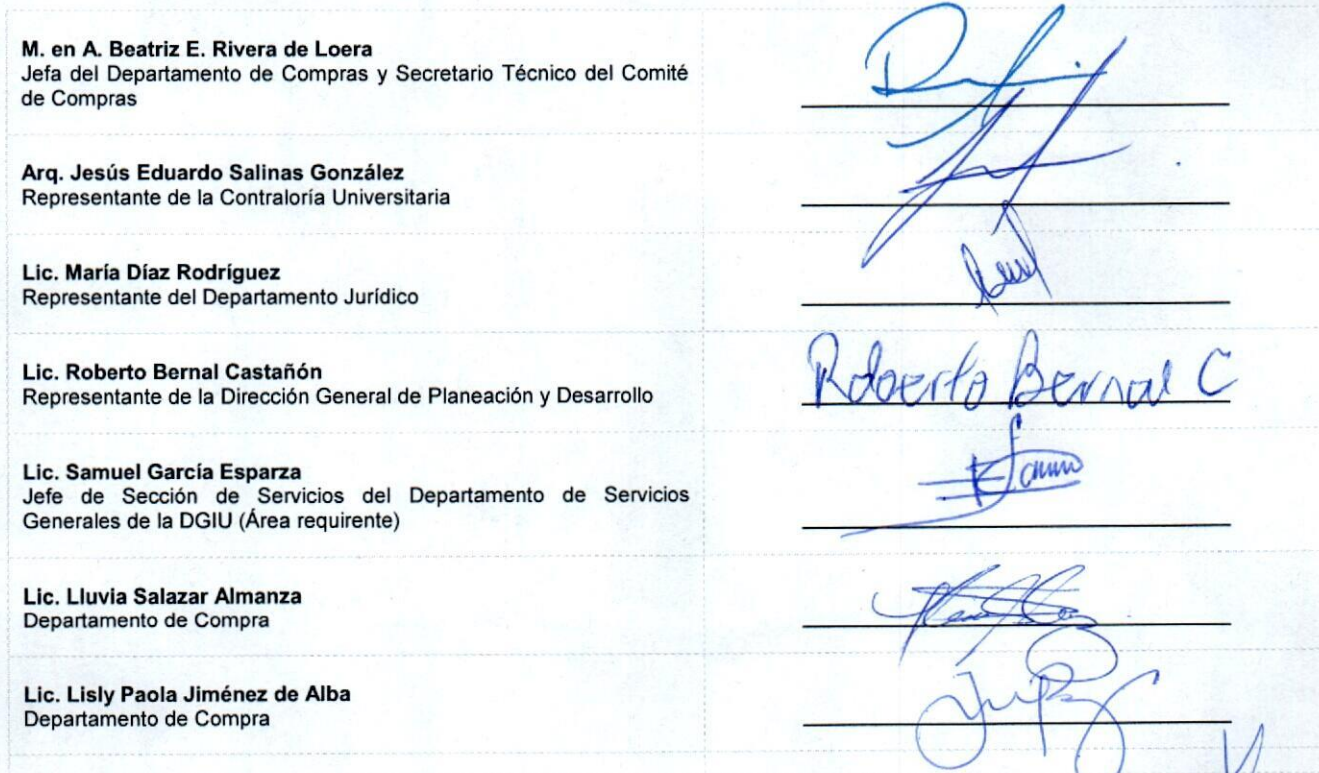 M. en A. Beatriz E. Rivera de Loera
Jefa del Departamento de Compras y Secretario Técnico del Comité
de Compras
Arq. Jesús Eduardo Salinas González
Representante de la Contraloría Universitaria
Lic. María Díaz Rodríguez
Representante del Departamento Jurídico
Lic. Roberto Bernal Castañón
Representante de la Dirección General de Planeación y Desarrollo
Roberto Bernal C
Lic. Samuel García Esparza
Jefe de Sección de Servicios del Departamento de Servicios
Generales de la DGIU (Área requirente)
Lic. Lluvia Salazar Almanza
Departamento de Compra
Lic. Lisly Paola Jiménez de Alba
Departamento de Compra